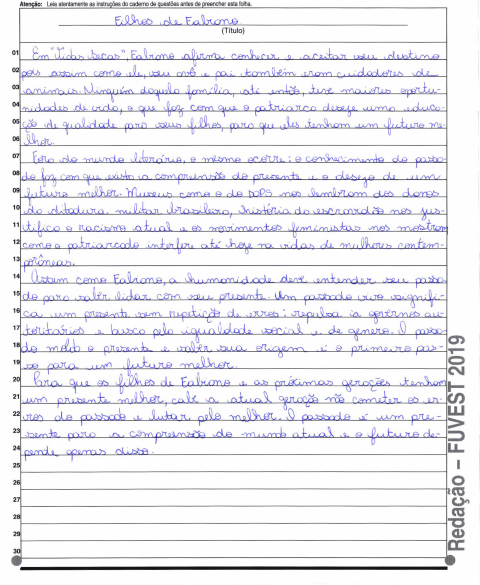 Atenção: Leia atentamente as instruções do caderno de questões antes de preencher esta folha.
Filhos de Fabiano
(Título)
01 Em "Vidas Secas", Fabiano afirma conhecer e aceitar seu destino
02 pois assim como ele, seu avô e pai também eram cuidadores de
03 animais. Ninguém daquela família, até então, teve maiores oportu-
04 nidades de vida, o que faz com que o patriarca deseje uma educa-
05 ção de qualidade para seus filhos, para que eles tenham um futuro me-
06 lhor.
07 Fora do mundo literário, o mesmo ocorre: o conhecimento do passa-
08 do faz com que exista a compreensão do presente e o desejo de um
09 futuro melhor. Museus como o do DOPS nos lembram dos danos
10 da ditadura militar brasileira, história da escravidão nos jus-
11 tifica o racismo atual e os movimentos feministas nos mostram
12 como o patriarcado interfere até hoje na vidas de mulheres contem-
13 porâneas.
14 Assim como Fabiano, a humanidade deve entender seu passa-
15 do para saber lidar com seu presente. Um passado vivo signifi-
16 ca um presente sem repetição de erros: repulsa a governos au-
17 toritários e busca pela igualdade social e de gênero. O passa-
18 do molda o presente e saber sua origem é o primeiro pas-
19 so para um futuro melhor.
20 Para que os filhos de Fabiano e as próximas gerações tenham
21 um presente melhor, cabe a atual geração não cometer os er-
22 ros do passado e lutar pelo melhor. O passado é um pre-
23 sente para a compreensão do mundo atual e o futuro de-
24 pende apenas disso.
25
26
27
28
29
30
Redação – FUVEST 2019